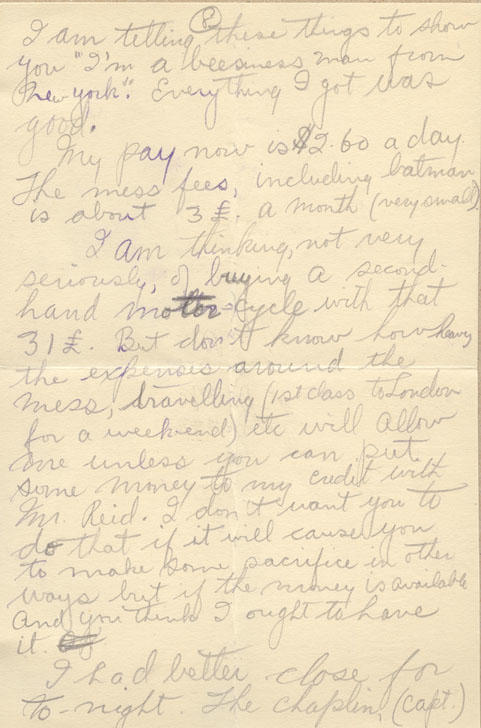 8
I am telling these things to show
you "I'm a beesiness man from
New York". Everything I got was
good.
My pay now is $2.60 a day.
The mess fees, including batman
is about 3£. a month (very small).
I am thinking, not very
seriously, of buying a second-
hand motor-cycle with that
31£. But don't know how heavy
the expenses around the
mess, travelling (1st class to London
for a weekend) etc will allow
me unless you can put
some money to my credit with
Mr. Reid. I don't want you to
do that if it will cause you
to make some sacrifice in other
ways but if the money is available
and you think I ought to have
it.
I had better close for
to-night. The chaplin, (capt.)